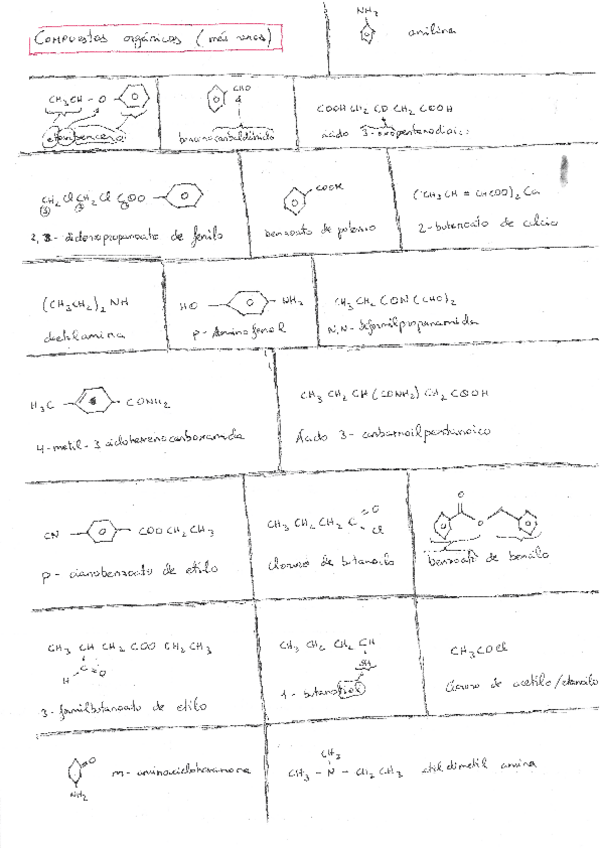 COMPUESTOS orgánicos (más raros)
NH2
anilina
CH3CH2 - O -
etoxibenceno
CHO
bencenocarbaldehído
COOH CH2 CO CH2 COOH
ácido 3-oxopentanodioico
CH2 Cl CH2 Cl COO -
2,3 - dicloropropanoato de fenilo
COOK
benzoato de potasio
(CH3 CH = CHCOO)2 Ca
2-butenoato de calcio
(CH3CH2)2 NH
dietilamina
HO - - NH2
p - Aminofenol
CH3 CH2 CON (CHO)2
N,N - diformilpropanamida
H3C - - CONH2
4-metil-3 ciclohexenocarboxamida
CH3 CH2 CH (CONH2) CH2 COOH
Ácido 3- carbamoilpentanoico
CN - - COO CH2 CH3
p - cianobenzoato de etilo
CH3 CH2 CH2 C O
Cl
Cloruro de butanoilo
O
O
benzoato de bencilo
CH3 CH CH2 COO CH2 CH3
H C O
3- formilbutanoato de etilo
CH3 CH2 CH2 CH
SH
1- butanotiol
CH3COCl
Cloruro de acetilo/etanoilo
O
NH2
m- aminociclohexanona
CH3
CH3 - N - CH2 CH3
etil dimetil amina